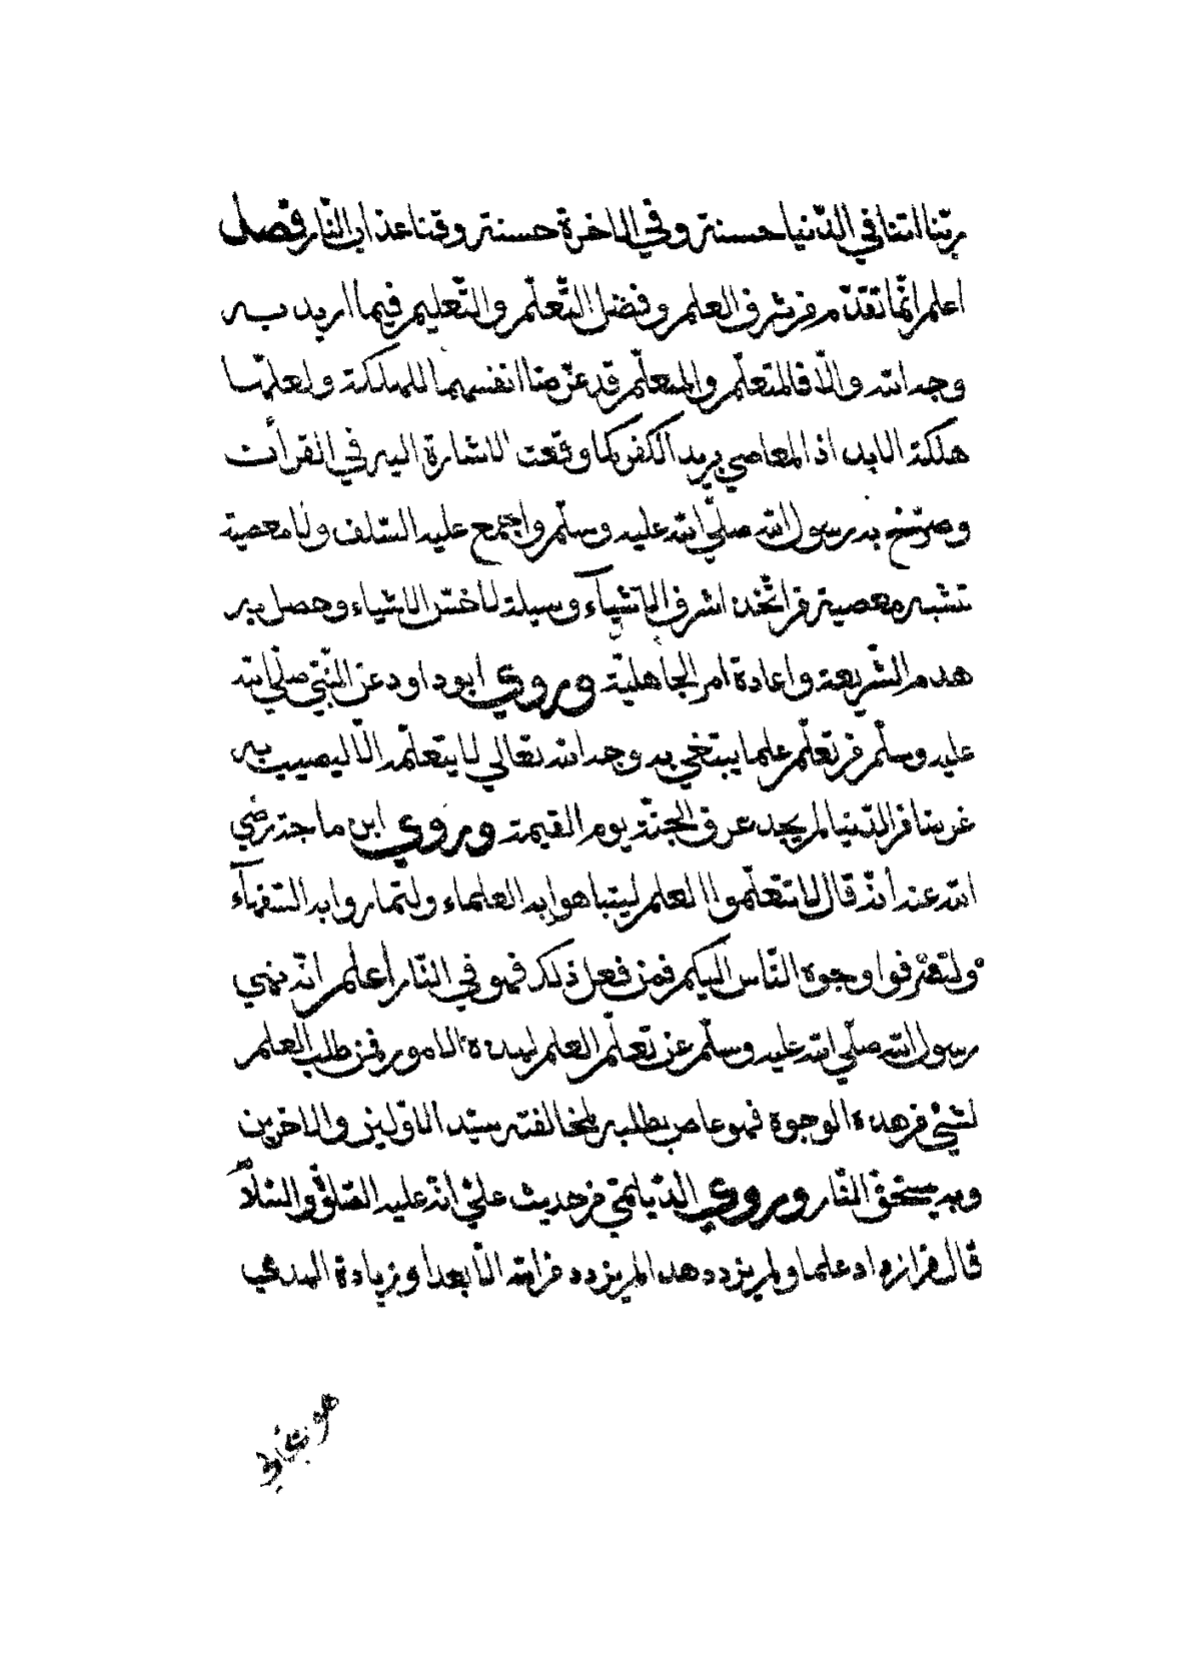 ربّنا اٰتنا في الدّنيا حسنة وفي الاخرة حسنة وقنا عذاب النّار فصل
اعلم انّما تقدّم من شرف العلم وفضل التّعلّم والتّعليم فيما اريد به
وجه الله والّا فالمتعلّم والمعلّم قد عرّضا انفسهما للهلكة ولعلهّا
هلكة الابد اذ المعاصي بريد الكفر كما وقعت الاشارة اليه في القرأن
وصرّح به رسول الله صلّي الله عليه وسلّم واجمع عليه السّلف ولا معصية
تشبه معصية من اتّخذ اشرف الاشيآء وسيلة لاخسّ الاشياء وحصل به
هدم الشّريعة واعادة امر الجاهليّة وروي ابو داود عن النّبيّ صلّي الله
عليه وسلّم من تعلّم علما يبتغي به وجه الله تعالي لا يتعلّمه الّا ليصيب به
غرضا من الدّنيا لم يجد عرف الجنّة يوم القيمة وروي ابن ماجة رضي
الله عنه أنّه قال لا تتعلّموا العلم ليتباهوا به العلماء ولتماروا به السّفهآء
ولتصرفوا وجوه النّاس اليكم فمن فعل ذلك فهو في النّار أعلم انّه نهي
رسول الله صلّي الله عليه وسلّم عن تعلّم العلم لهذه الامور فمن طلب العلم
لشيئ من هذه الوجوه فهو عاص بطلبه لمخالفته سيّد الاوّلين والاخرين
وبه يستحقّ النّار وروي الدّيلميّ من حديث عليّ أنّه عليه الصّلوة والسّلام
قال من ازداد علما ولم يزدد هدا لم يزدد من الله الّا بعدا وزيادة الهدي